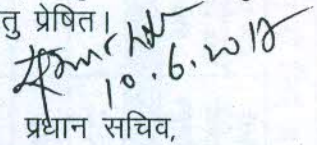 तु प्रेषित।
10.6.2012
प्रधान सचिव,